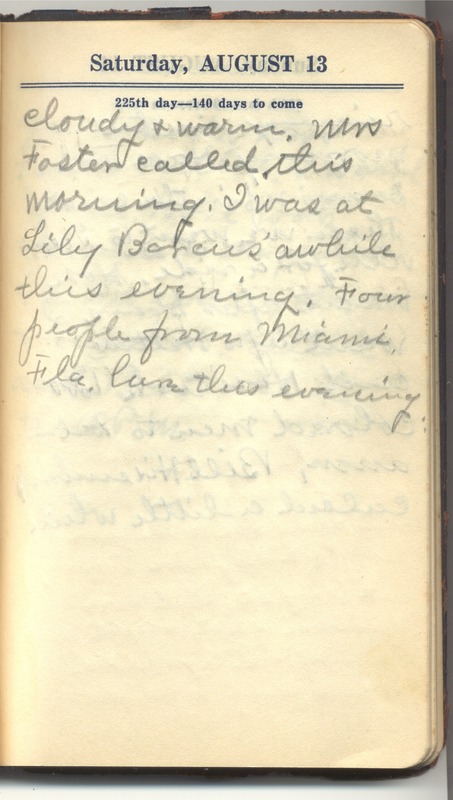 Saturday, AUGUST 13
225th day—140 days to come
cloudy & warm. Mrs
Foster called this
morning. I was at
Lily Barcus' awhile
this evening. Four
people from Miami,
Fla. here this evening.